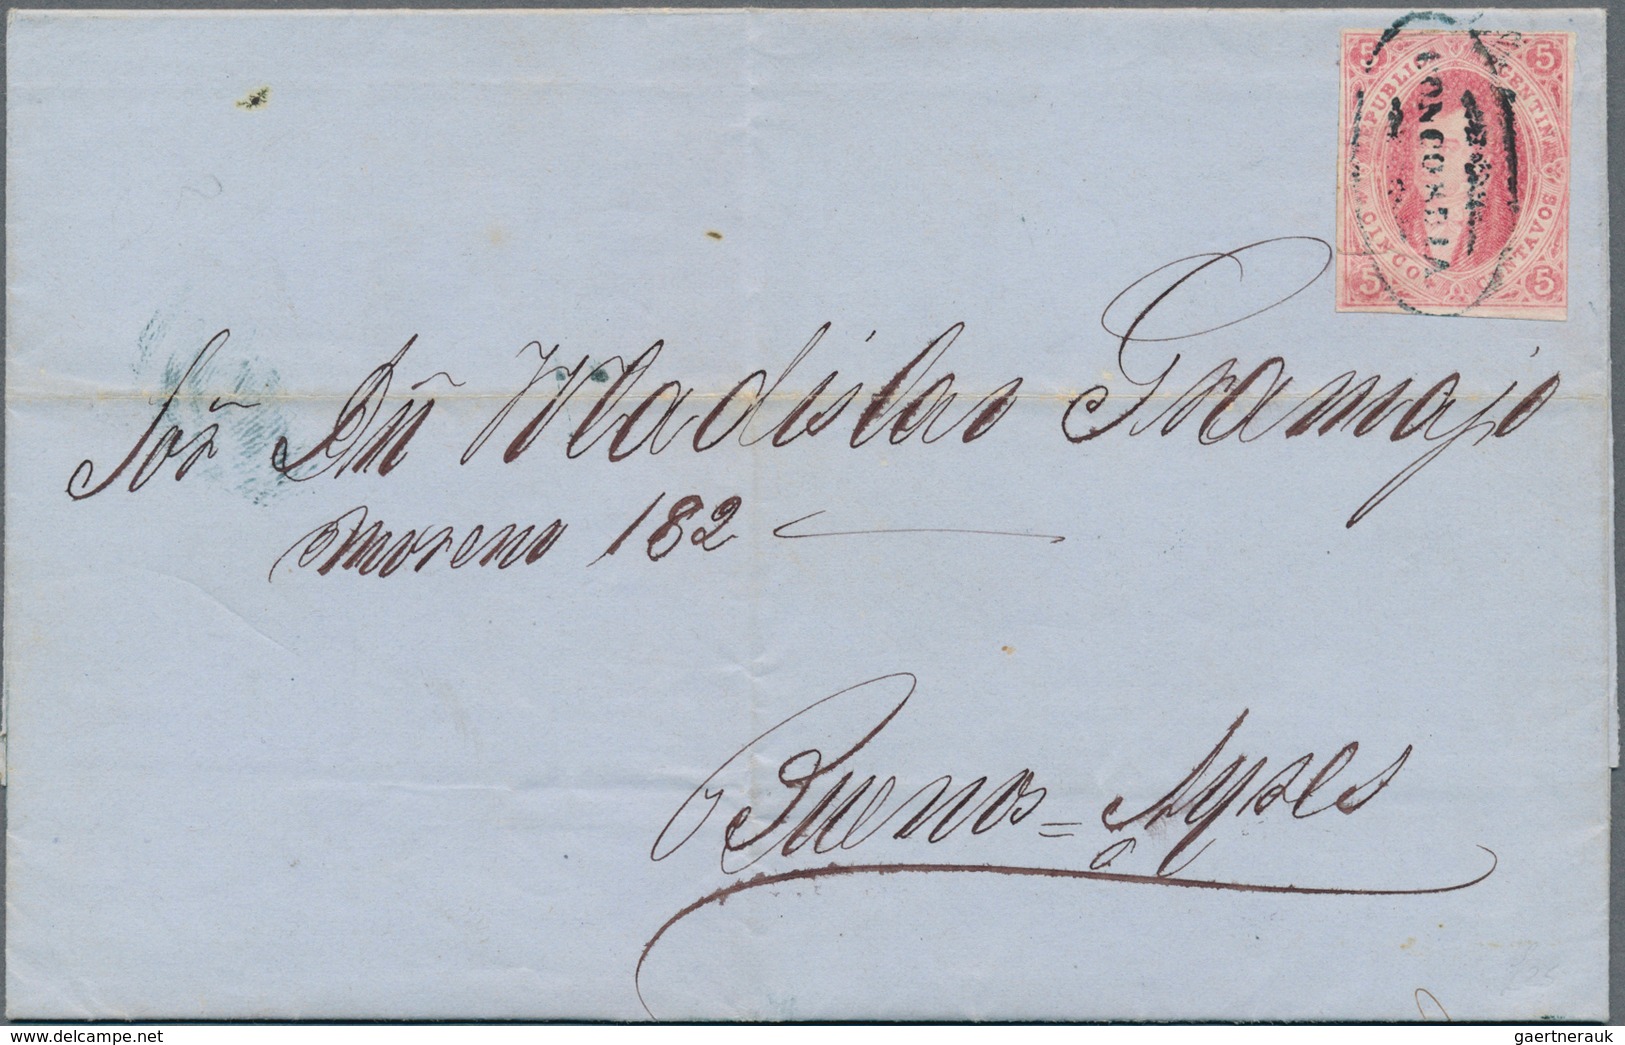 5 REPUBLICA ARGENTINA 5
CONCORDIA
5 CINCO CENTAVOS 5
Sor Dn Wladislao Gramajo
Moreno 182
Buenos=Ayres
gaertnerauk